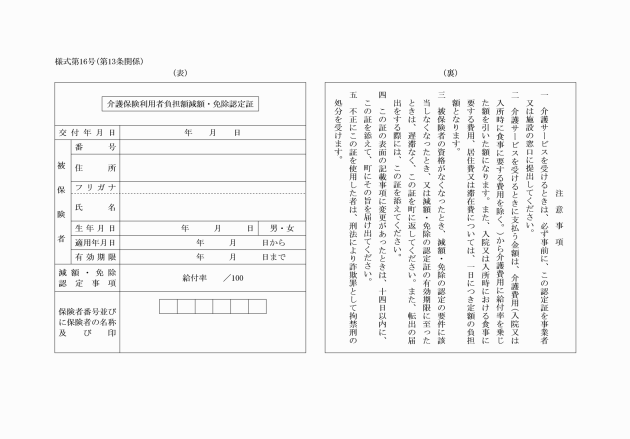 様式第16号(第13条関係)
(表)
介護保険利用者負担額減額・免除認定証
交付年月日　年　月　日
被保険者
番号
住所
フリガナ
氏名
生年月日　年　月　日　男・女
適用年月日　年　月　日から
有効期限　年　月　日まで
減額・免除
認定事項
給付率　／100
保険者番号並び
に保険者の名称
及び印
(裏)
注意事項
一　介護サービスを受けるときは、必ず事前に、この認定証を事業者
又は施設の窓口に提出してください。
二　介護サービスを受けるときに支払う金額は、介護費用(入院又は
入所時に食事に要する費用を除く。)から介護費用に給付率を乗じ
た額を引いた額になります。また、入院又は入所時における食事に
要する費用、居住費又は滞在費については、一日につき定額の負担
額となります。
三　被保険者の資格がなくなったとき、減額・免除の認定の要件に該
当しなくなったとき、又は減額・免除の認定証の有効期限に至った
ときは、遅滞なく、この証を町に返してください。また、転出の届
出をする際には、この証を添えてください。
四　この証の表面の記載事項に変更があったときは、十四日以内に、
この証を添えて、町にその旨を届け出てください。
五　不正にこの証を使用した者は、刑法により詐欺罪として拘禁刑の
処分を受けます。